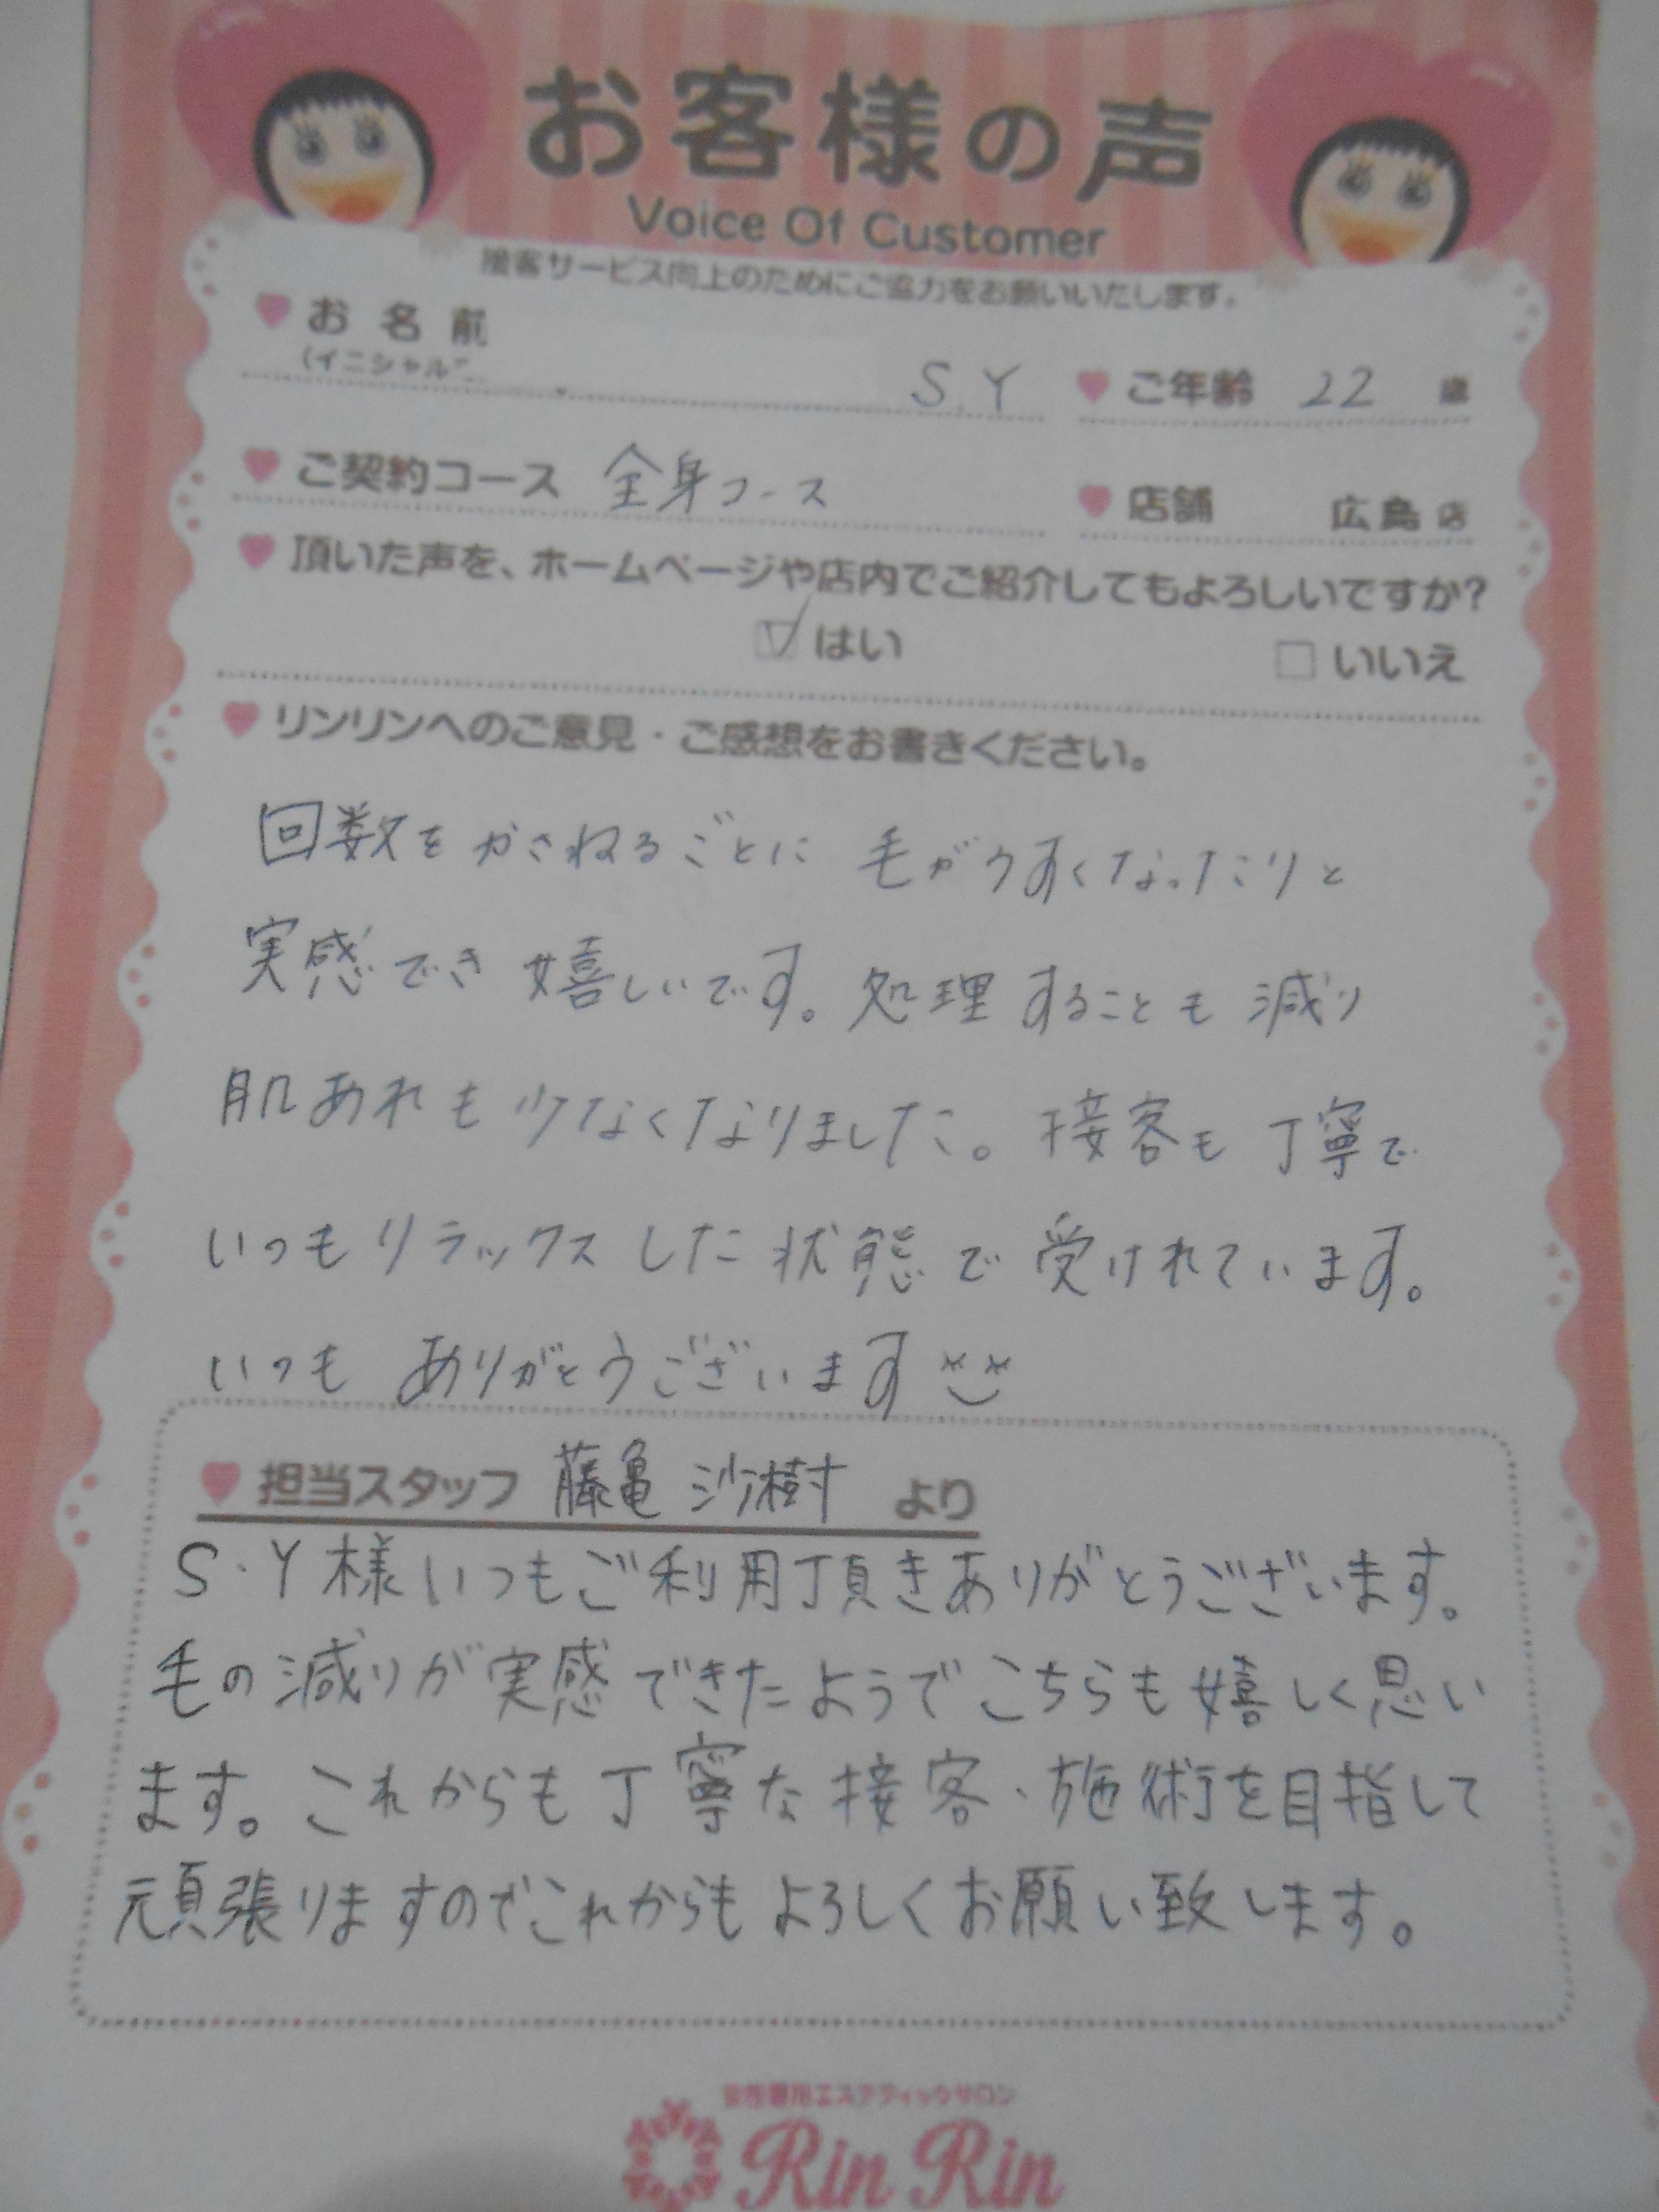 お客様の声
Voice Of Customer
接客サービス向上のためにご協力をお願いいたします。
お名前
(イニシャル
S.Y
ご年齢 22 歳
ご契約コース 全身コース
店舗 広島店
頂いた声を、ホームページや店内でご紹介してもよろしいですか?
はい いいえ
リンリンへのご意見・ご感想をお書きください。
回数をかさねるごとに 毛がうすくなったりと
実感でき 嬉しいです。処理することも減り
肌あれも少なくなりました。接客も丁寧で
いつもリラックスした状態で受けれています。
いつも ありがとうございます
担当スタッフ 藤亀 沙樹 より
S・Y様いつもご利用頂きありがとうございます。
毛の減りが実感できたようでこちらも嬉しく思い
ます。これからも丁寧な接客・施術を目指して
頑張りますのでこれからもよろしくお願い致します。
女性専用エステティックサロン
Rin Rin